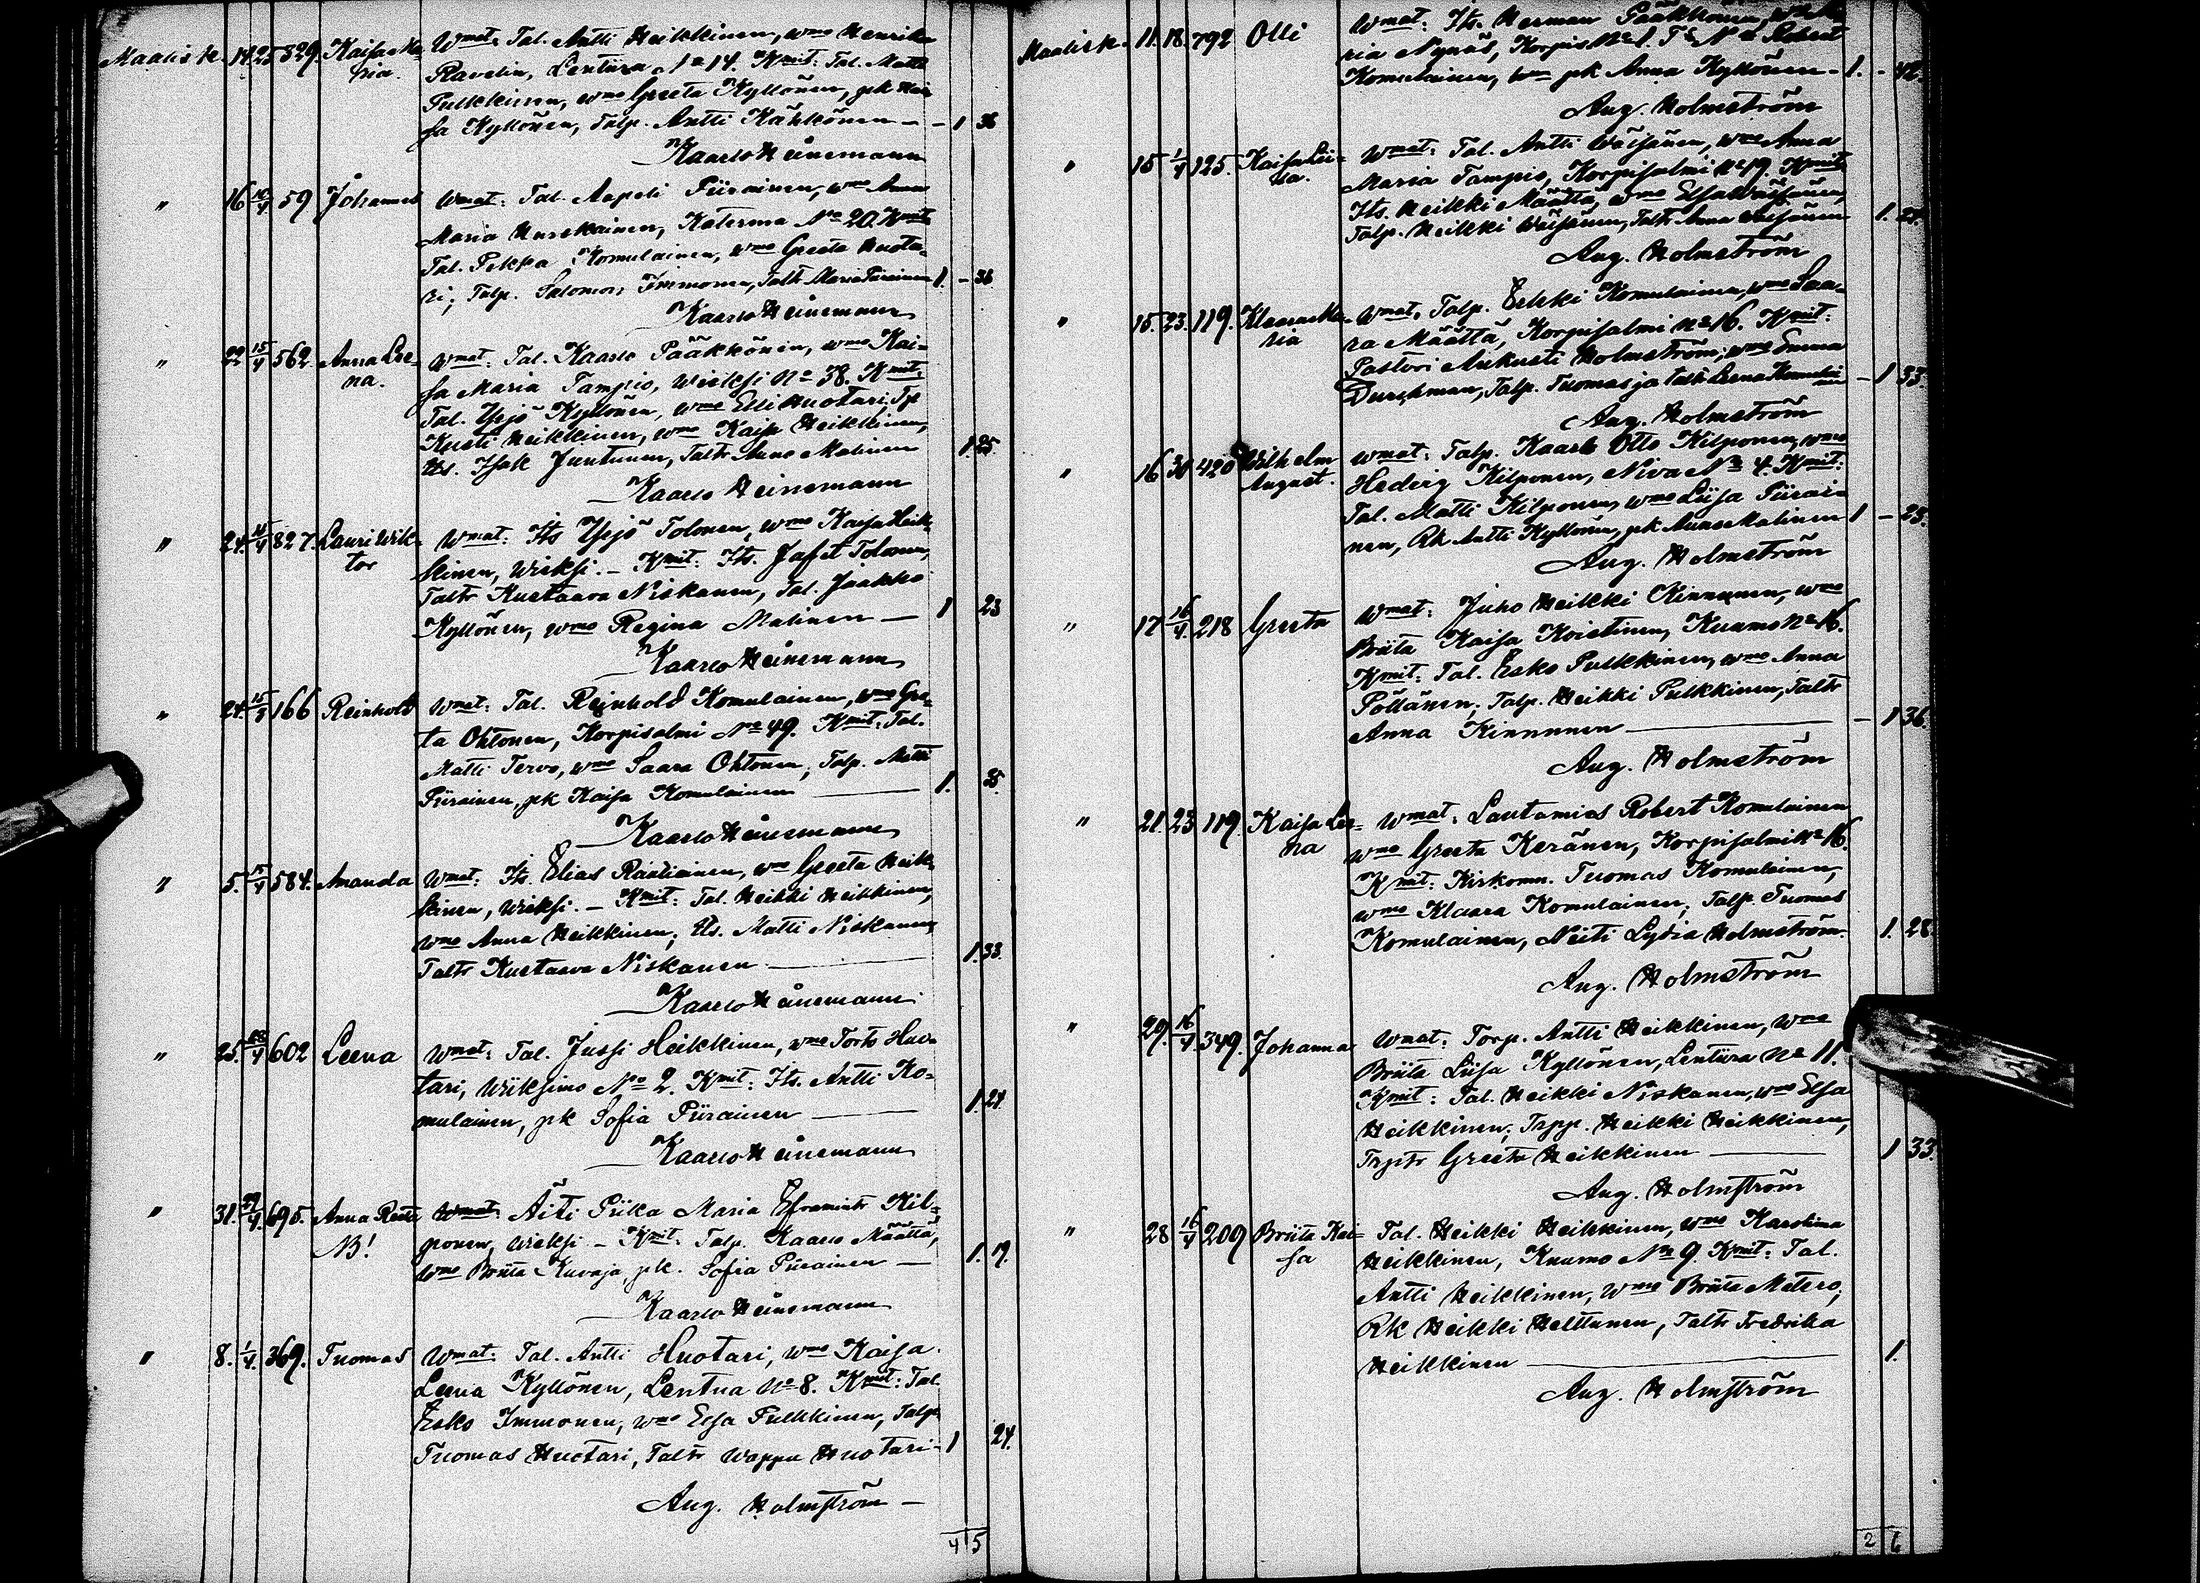 Maalisk. 14 25 829. Kaisa Ma- Wmat: Tal. Antti Heikkinen, wmo Henrika
ria. Ravelin, Lentiira No 14. Kmit: Tal. Matti
Pulkkinen, wmo Greeta Kyllönen, pk Kai-
sa Kyllönen, Talp. Antti Kähkönen — - 1 36
Kaarlo Heinemann
" 16 59 Johannes Wmat: Tal. Aapeli Piirainen, wmo Anna
Maria Hurskainen, Katerma No 20. Kmit:
Tal. Pekka Komulainen, wmo Greeta Huota-
ri; Talp. Salomon Immonen, Taltr Maria Piirainen 1. - 36
Kaarlo Heinemann
" 22 15/4 562. Anna Lee- Wmat: Tal. Kaarlo Pääkkönen, wmo Kai-
na. sa Maria Tampio, Wieksi No 38. Kmit:
Tal. Yrjö Kyllönen, wmo Elli Huotari;
Kusti Heikkinen, wmo Kaisa Heikkinen,
Its. Isak Juntunen, Taltr Anna Malinen 1. 25.
Kaarlo Heinemann
" 24. 827. Lauri Wik- Wmat: Its Yrjö Tolonen, wmo Kaisa Heik-
tor kinen, Wieksi. — Kmit: Its. Jafet Tolonen,
Taltr Kustaava Niskanen, Tal. Jaakko
Kyllönen, wmo Regina Malinen — 1 23
Kaarlo Heinemann
" 24. 166 Reinhold Wmat: Tal. Reinhold Komulainen, wmo Gree-
ta Ohtonen, Korpisalmi No 49. Kmit: Tal.
Matti Tervo, wmo Saara Ohtonen; Talp. Matti
Piirainen, pk Kaisa Komulainen — 1. 35.
Kaarlo Heinemann
" 5. 584. Amanda Wmat: Its. Elias Räätiainen, wmo Greeta Heik-
kinen, Wieksi. — Kmit: Tal. Heikki Heikkinen,
wmo Anna Heikkinen; Its. Matti Niskanen,
Taltr Kustaava Niskanen — 1. 33.
Kaarlo Heinemann
" 25. 602 Leena Wmat: Tal. Jussi Heikkinen, wmo Huo-
tari, Wiiksimo No 2. Kmit: Its. Antti Ko-
mulainen, pk Sofia Piirainen — 1. 24.
Kaarlo Heinemann
" 31. 695. Anna Reeta Wmat: Äiti Piika Maria Kil-
NB! ponen, Wieksi — Kmit: Talp. Kaarlo Määttä,
wmo Briita Kuvaja, pk. Sofia Piirainen — 1. 19.
Kaarlo Heinemann
" 8. 1/4. 369. Tuomas Wmat: Tal. Antti Huotari, wmo Kaisa
Leena Kyllönen, Lentua No 8. Kmit: Tal.
Esko Immonen, wmo Elsa Pulkkinen, Talp.
Tuomas Huotari, Taltr Wappu Huotari - 1 24.
Aug. Holmström —
4 5
Maalisk. 11. 18. 792 Olli Wmat: Its. Herman Pääkkönen, wmo Ma-
ria Nynäs, Korpis No 1. Robert
Komulainen, pk Anna Kyllönen - 1. - 42.
Aug. Holmström
" 15 1/4 125. Kaisa Lii- Wmat: Tal. Antti Wäisänen, wmo Anna
sa. Maria Tampio, Korpisalmi No 19. Kmit:
Its. Heikki Määttä, wmo Elsa Wäisänen,
Talp. Heikki Wäisänen, Taltr Anna Wäisänen 1. 24.
Aug. Holmström
" 15. 23. 119. Klaara Ma- Wmat: Talp. Erkki Komulainen, wmo Saa-
ria ra Määttä, Korpisalmi No 16. Kmit:
Pastori Aukusti Holmström, wmo Emma
Durchman, Talp. Tuomas ja taltr Leena Komulai- - 1 33.
Aug. Holmström
" 16 31 420 Wilhelm Wmat: Talp. Kaarlo Otto Kilponen, wmo
August. Hedvig Kilponen, Niva No 4. Kmit:
Tal. Matti Kilponen, wmo Liisa Piirai-
nen, Rk Antti Kyllönen, pk Anna Malinen 1 - 23.
Aug. Holmström
" 17 16/4. 218 Greeta Wmat: Juho Heikki Kinnunen, wmo
Briita Kaisa Koistinen, Kuumo No 16.
Kmit: Tal. Esko Pulkkinen, wmo Anna
Pöllänen; Talp. Heikki Pulkkinen, Taltr
Anna Kinnunen — - 1 36.
Aug. Holmström
" 21. 23 119 Kaisa Lee- Wmat: Lautamies Robert Komulainen
na wmo Greeta Keränen, Korpisalmi No 16.
Kmit: Kirkonm. Tuomas Komulainen,
wmo Klaara Komulainen; Talp. Tuomas
Komulainen, Neiti Lydia Holmström. 1. 28.
Aug. Holmström
" 29. 16/4 349. Johanna Wmat: Torp. Antti Heikkinen, wmo
Briita Liisa Kyllönen, Lentiira No 11.
Kmit: Tal. Heikki Niskanen, wmo Elsa
Heikkinen; Trpp. Heikki Heikkinen,
Trptr Greeta Heikkinen — 1 33.
Aug. Holmström
" 28 16/4 209 Briita Kai- Tal. Heikki Heikkinen, wmo Karolina
sa Heikkinen, Kuumo No 9. Kmit: Tal.
Antti Heikkinen, wmo Briita Matero;
Rk Heikki Helttunen, Taltr Fredrika
Heikkinen — 1.
Aug. Holmström
2 6